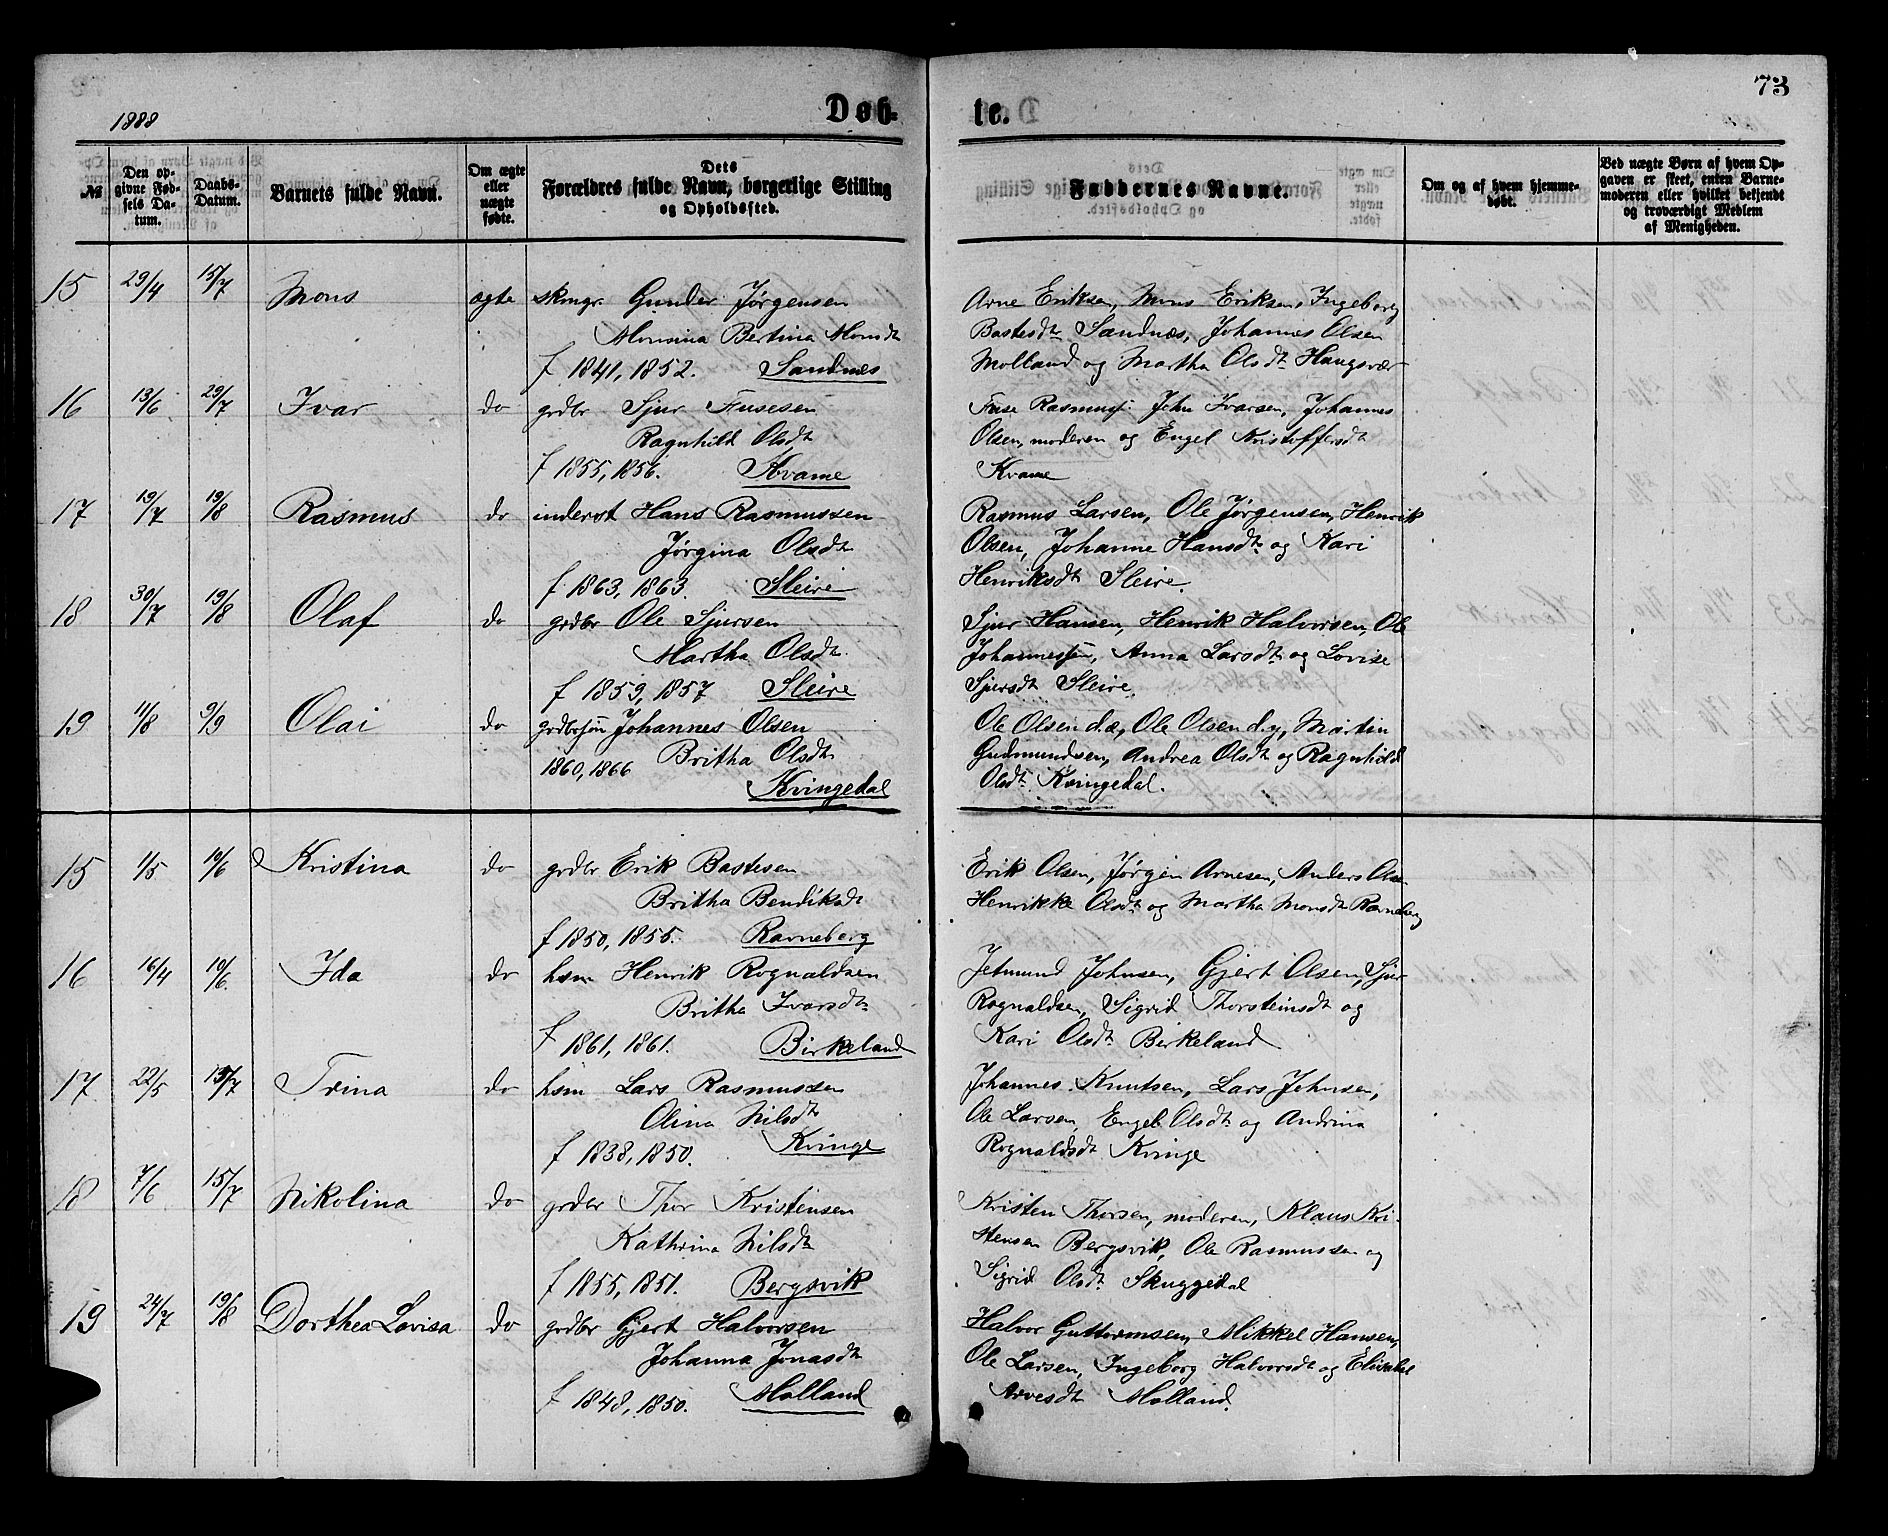 73
1888
Døb-
te.
№
Den op-
givne Fød-
sels Da-
tum.
Daabs-
Datum.
Barnets fulde Navn.
Om ægte
eller
uægte
fødte.
Dets
Forældres fulde Navn, borgerlige Stilling
og Opholdssted.
Faddernes Navne.
Om og af hvem hjemme-
døbt.
Ved uægte Børn af hvem Op-
gaven er skeet, enten Barne-
moderen eller hvilket bekjendt
og troværdigt Medlem
af Menigheden.
15 29/4 15/7 Mons ægte skmgr. Gunder Jørgensen
Monsina Bertina Monsdt
f 1841, 1852. Sandnes
Arne Eriksen, Mons Eriksen, Ingeborg
Bastesdt Sandnæs, Johannes Olsen
Molland og Martha Olsdt Haugsvær
16 13/6 29/7 Ivar do grdbr Sjur Fusesen
Ragnhild Olsdt
f 1855, 1856. Kvame
Fuse Rasmuss. John Ivarsen, Johannes
Olsen, moderen og Engel Kristoffersdt
Kvame
17 19/7 19/8 Rasmus do inderst Hans Rasmussen
Jørgina Olsdt
f 1863, 1863. Sleire
Rasmus Larsen, Ole Jørgensen, Henrik
Olsen, Johanne Hansdt og Kari
Henriksdt Sleire.
18 30/7 19/8 Olaf do grdbr Ole Sjursen
Martha Olsdt.
f 1859, 1857 Sleire
Sjur Hansen, Henrik Halvorsen, Ole
Johannessen, Anna Larsdt og Lovise
Sjursdt Sleire.
19 11/8 9/9 Olai do grdbrsøn Johannes Olsen
1860, 1866 Britha Olsdt
Kvingedal
Ole Olsen d.æ, Ole Olsen d.y, Martin
Gudmundsen, Andrea Olsdt og Ragnhild
Olsdt Kvingedal.
15 1/5 10/6 Kristina do grdbr Erik Bastesen
Britha Bendiksdt
f 1850, 1855. Ravneberg
Erik Olsen, Jørgen Arnesen, Anders Olsen
Henrikke Olsdt og Martha Monsdt Ravneberg
16 16/4 10/6 Ida do hsm Henrik Rognaldsen
Britha Ivarsdt
f 1861, 1861. Birkeland
Jetmund Johnsen, Gjert Olsen, Sjur
Rognaldsen, Sigrid Thorsteinsdt og
Kari Olsdt Birkeland
17 22/5 15/7 Trina do hsm Lars Rasmussen
Olina Nilsdt
f 1838, 1850. Kvinge
Johannes Knutsen, Lars Johnsen,
Ole Larsen, Engel Olsdt og Andrina
Rognaldsdt Kvinge
18 7/6 15/7 Nikolina do grdbr Thor Kristensen
Kathrina Nilsdt
f 1855, 1851. Bergsvik
Kristen Thorsen, moderen, Klaus Kri-
stensen Bergsvik, Ole Rasmussen og
Sigrid Olsdt Skuggedal
19 24/7 19/8 Dorthea Lovisa do grdbr Gjert Halvorsen
Johanna Jonasdt
f 1848, 1850. Molland
Halvor Guttormsen, Mikkel Hansen,
Ole Larsen, Ingeborg Halvorsdt og Elisabet
Arvesdt Molland.